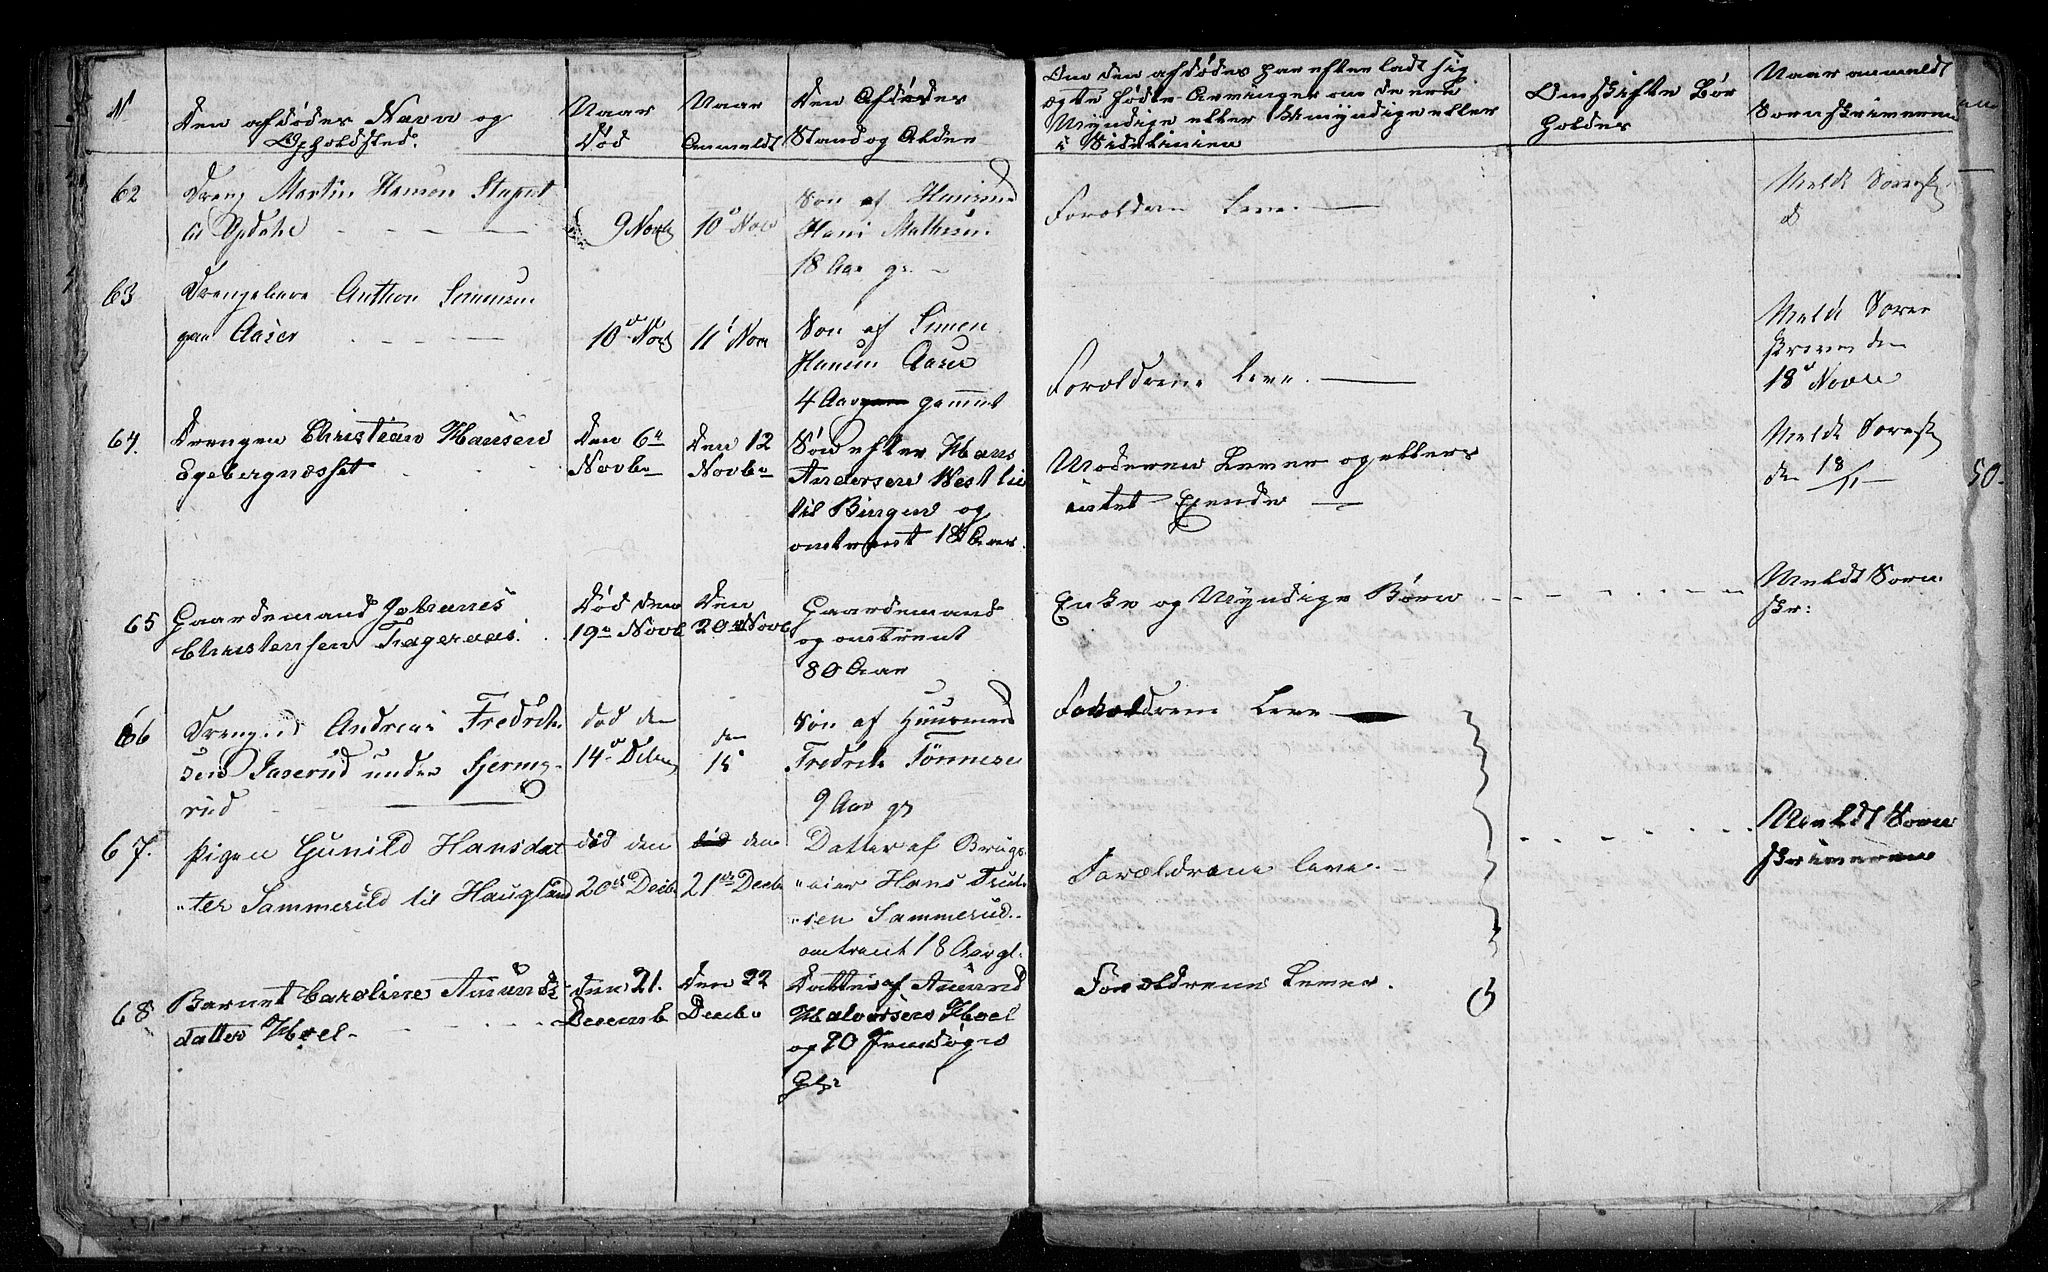 N
Den afdødes Navn og
Opholdsted.
Naar
Død
Naar
Anmeldt
Den Afdødes
Stand og Alder
Om den afdødes har efterladt sig
ægte fødte Arvinger om de ere
Myndige eller Umyndige eller
i Sidelinien
Om Skifte Bør
holdes
Naar anmeldt
Sorenskriveren
62
Dreng Martin Hansen
9 Novb
10 Nov
Søn af
Hans Mathisen
18 Aar gl
Forældrene Leve.
Meldt Sorensk
d
63
Drengebarn Anthon Simensen
paa Aaser
10 Novb
11 Nov
Søn af Simen
Hansen Aaser
4 Aar gammel
Forældrene Leve.
Meldt Soren
skriver den
18 Novbr
64.
Drengen Christian Hansen
Egebergnæsset
Den 6te
Novbr
Den 12
Novbr
Søn efter Hans
Andersen Westlie
til Bingen og
omtrent 18 Aar
Moderen Lever og ellers
intet Ejende
Meldt Sorensk
den 18/11
65
Gaardemand Johanes
Christensen Tragernæs.
Død den
19de Novb
Den
20de Novb
Gaardemand
og omtrent
80 Aar
Enke og Myndige Børn
Meldt Sorn
skr:
66
Drengen Andreas Fredrik
sen under
rud
død den
14de Decbr
den
15
Søn af Huusmand
Fredrik Tønnesen
9 Aar gl
Forældrene Leve
67.
Pigen Gunild Hansdat
ter Sammerud til Hauglund
død den
20de Decbr
den
21de Decbr
Datter af Brugs
eier Hans Truls
sen Sammerud.
omtrent 18 Aar gl.
Forældrene leve.
Meldt Soren
skriveren
68
Barnet Caroline Amunds
datter Hoel
den 21.
Decemb
Den 22
Decbr
Datter af Amund
Halvorsen Hoel
og 20
Gl:
Forældrene Lever.
50.